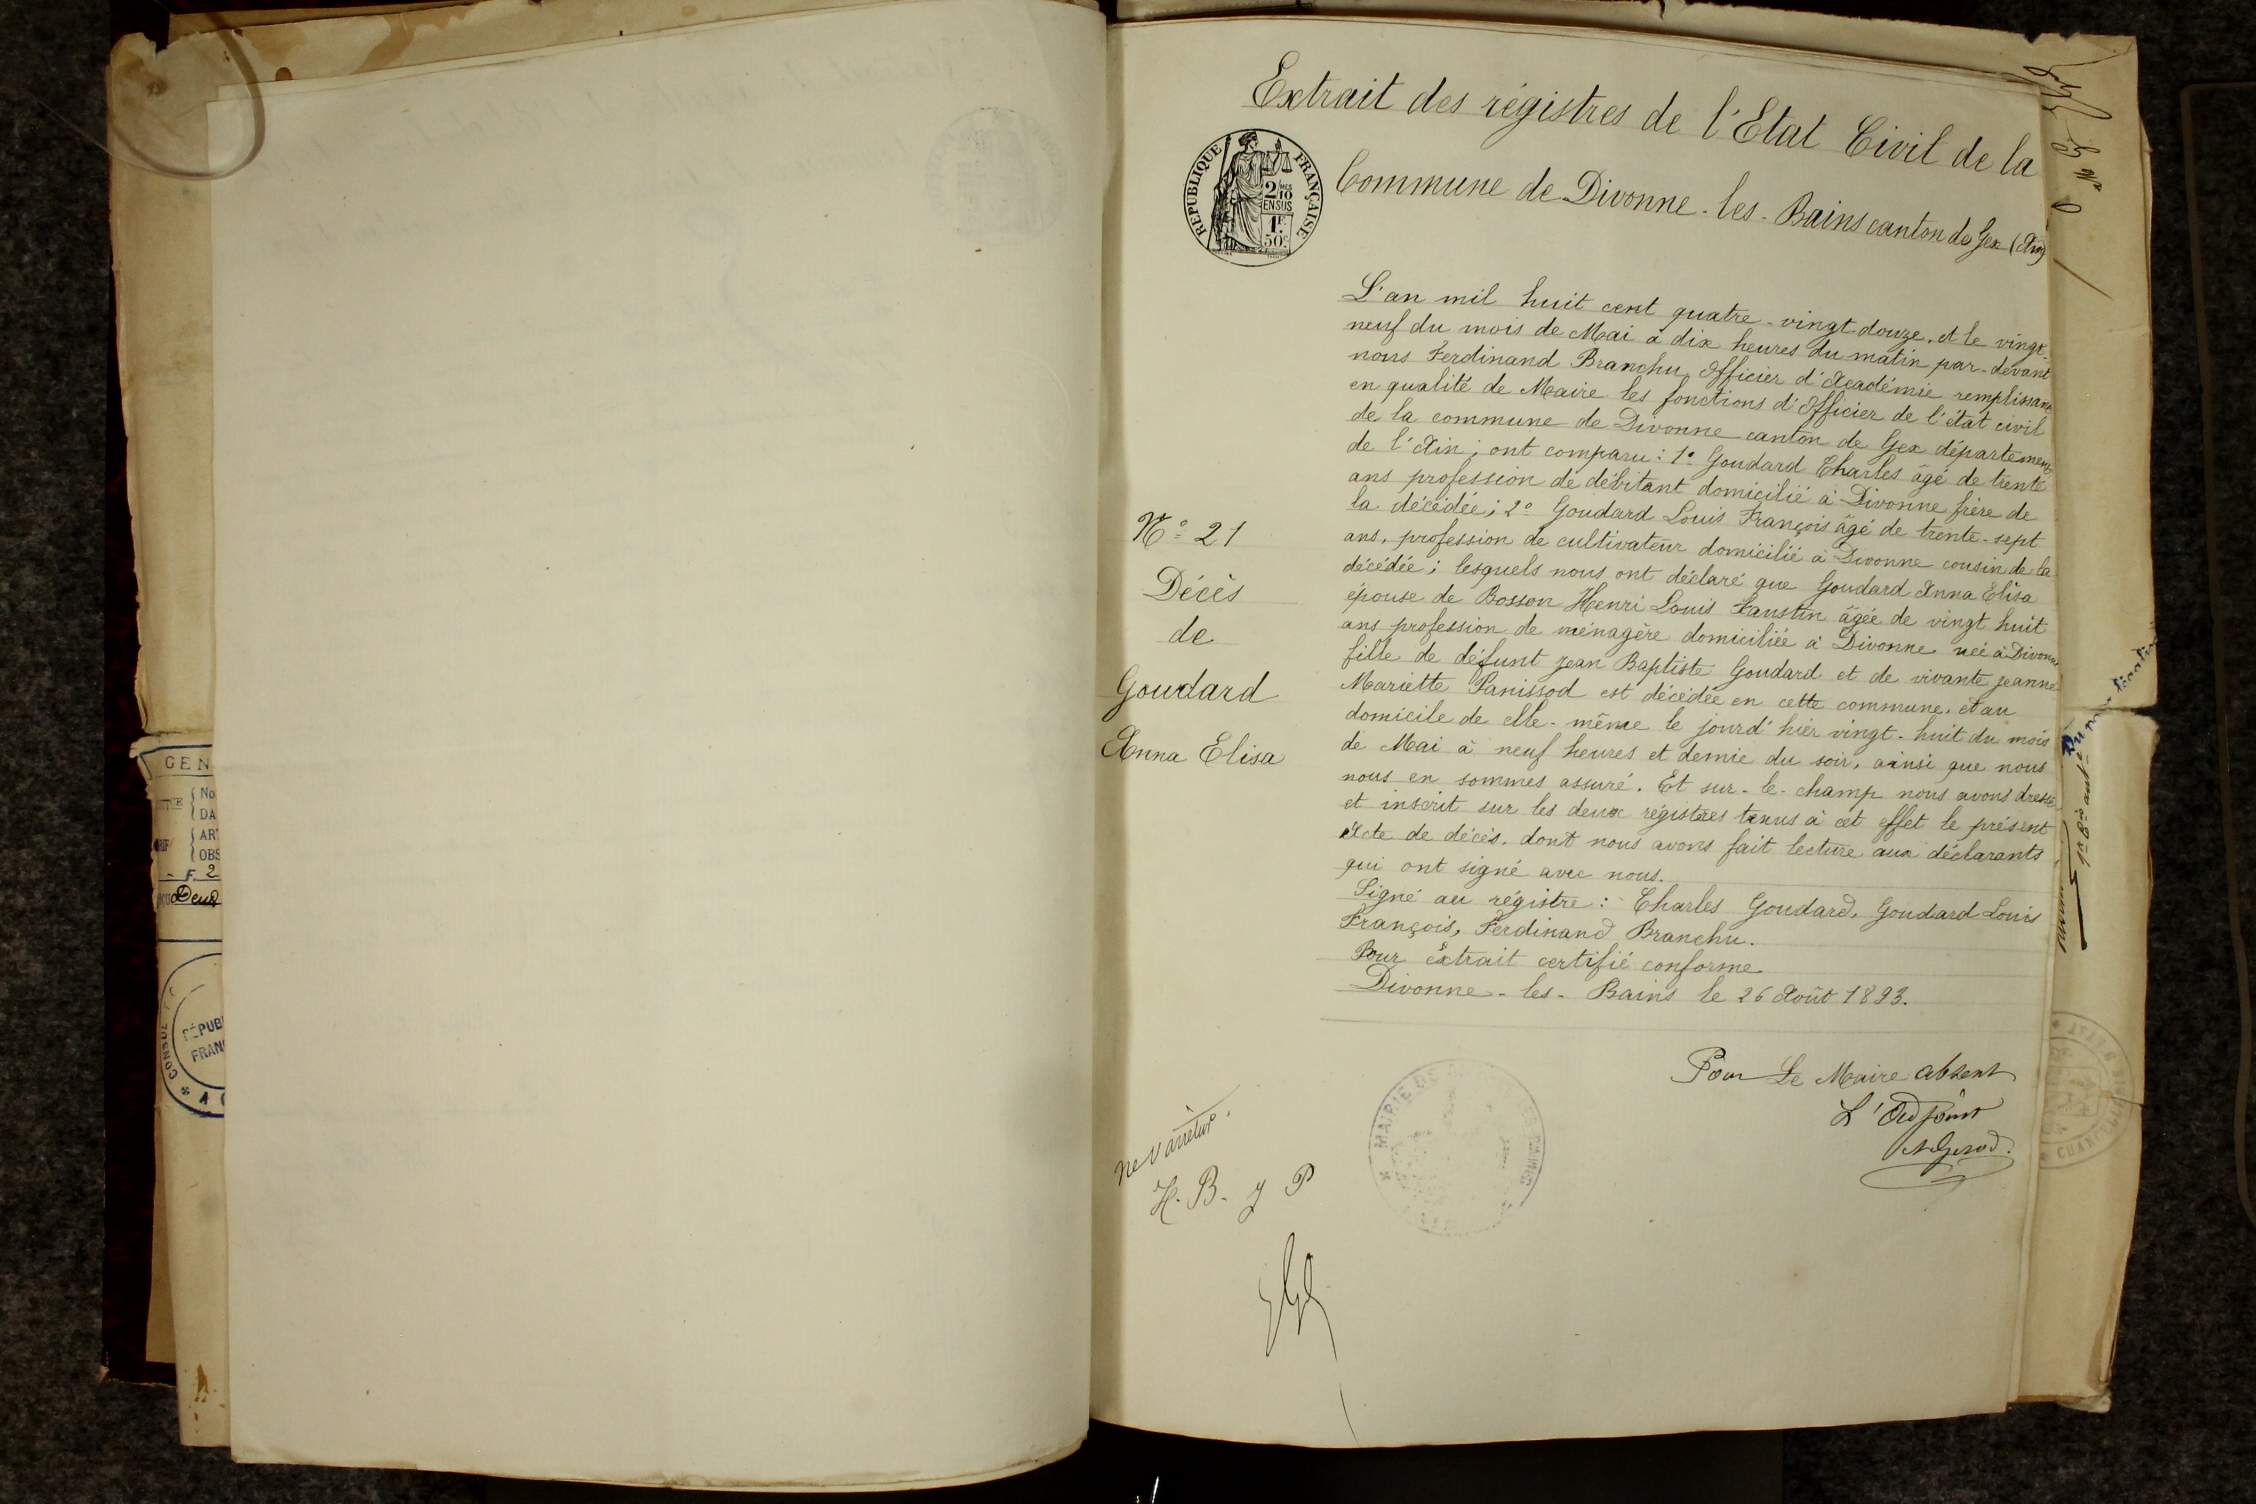 Extrait des régistres de l'Etat Civil de la
Commune de Divonne-les-Bains canton de Gex (Ain)
REPUBLIQUE FRANÇAISE
2/10 EN SUS
1F. 50c.
L'an mil huit cent quatre-vingt douze, et le vingt-
neuf du mois de Mai à dix heures du matin par-devant
nous Ferdinand Branchu, Officier d'Académie remplissant
en qualité de Maire les fonctions d'Officier de l'état civil
de la commune de Divonne canton de Gex département
de l'Ain; ont comparu: 1° Goudard Charles âgé de trente
ans profession de débitant domicilié à Divonne frère de
la décédée; 2° Goudard Louis François âgé de trente-sept
ans, profession de cultivateur domicilié à Divonne cousin de la
décédée; lesquels nous ont déclaré que Goudard Anna Elisa
épouse de Bosson Henri Louis Faustin âgée de vingt huit
ans profession de ménagère domiciliée à Divonne née à Divonne
fille de défunt Jean Baptiste Goudard et de vivante Jeanne
Mariette Panissod est décédée en cette commune, et au
domicile de elle-même le jourd'hier vingt-huit du mois
de Mai à neuf heures et demie du soir, ainsi que nous
nous en sommes assuré. Et sur-le-champ nous avons dressé
et inscrit sur les deux régistres tenus à cet effet le présent
Acte de décès, dont nous avons fait lecture aux déclarants
qui ont signé avec nous.
Signé au régistre: Charles Goudard, Goudard Louis
François, Ferdinand Branchu.
Pour extrait certifié conforme
Divonne-les-Bains le 26 Août 1893.
Pour Le Maire absent
L'Adjoint
N° 21
Décès
de
Goudard
Anna Elisa
ne varietur.
H. B. J P
MAIRIE DE
BAINS
GEN
No
DA
AR
OBS
F. 2
Deux
CONSUL
RÉPUB
FRAN